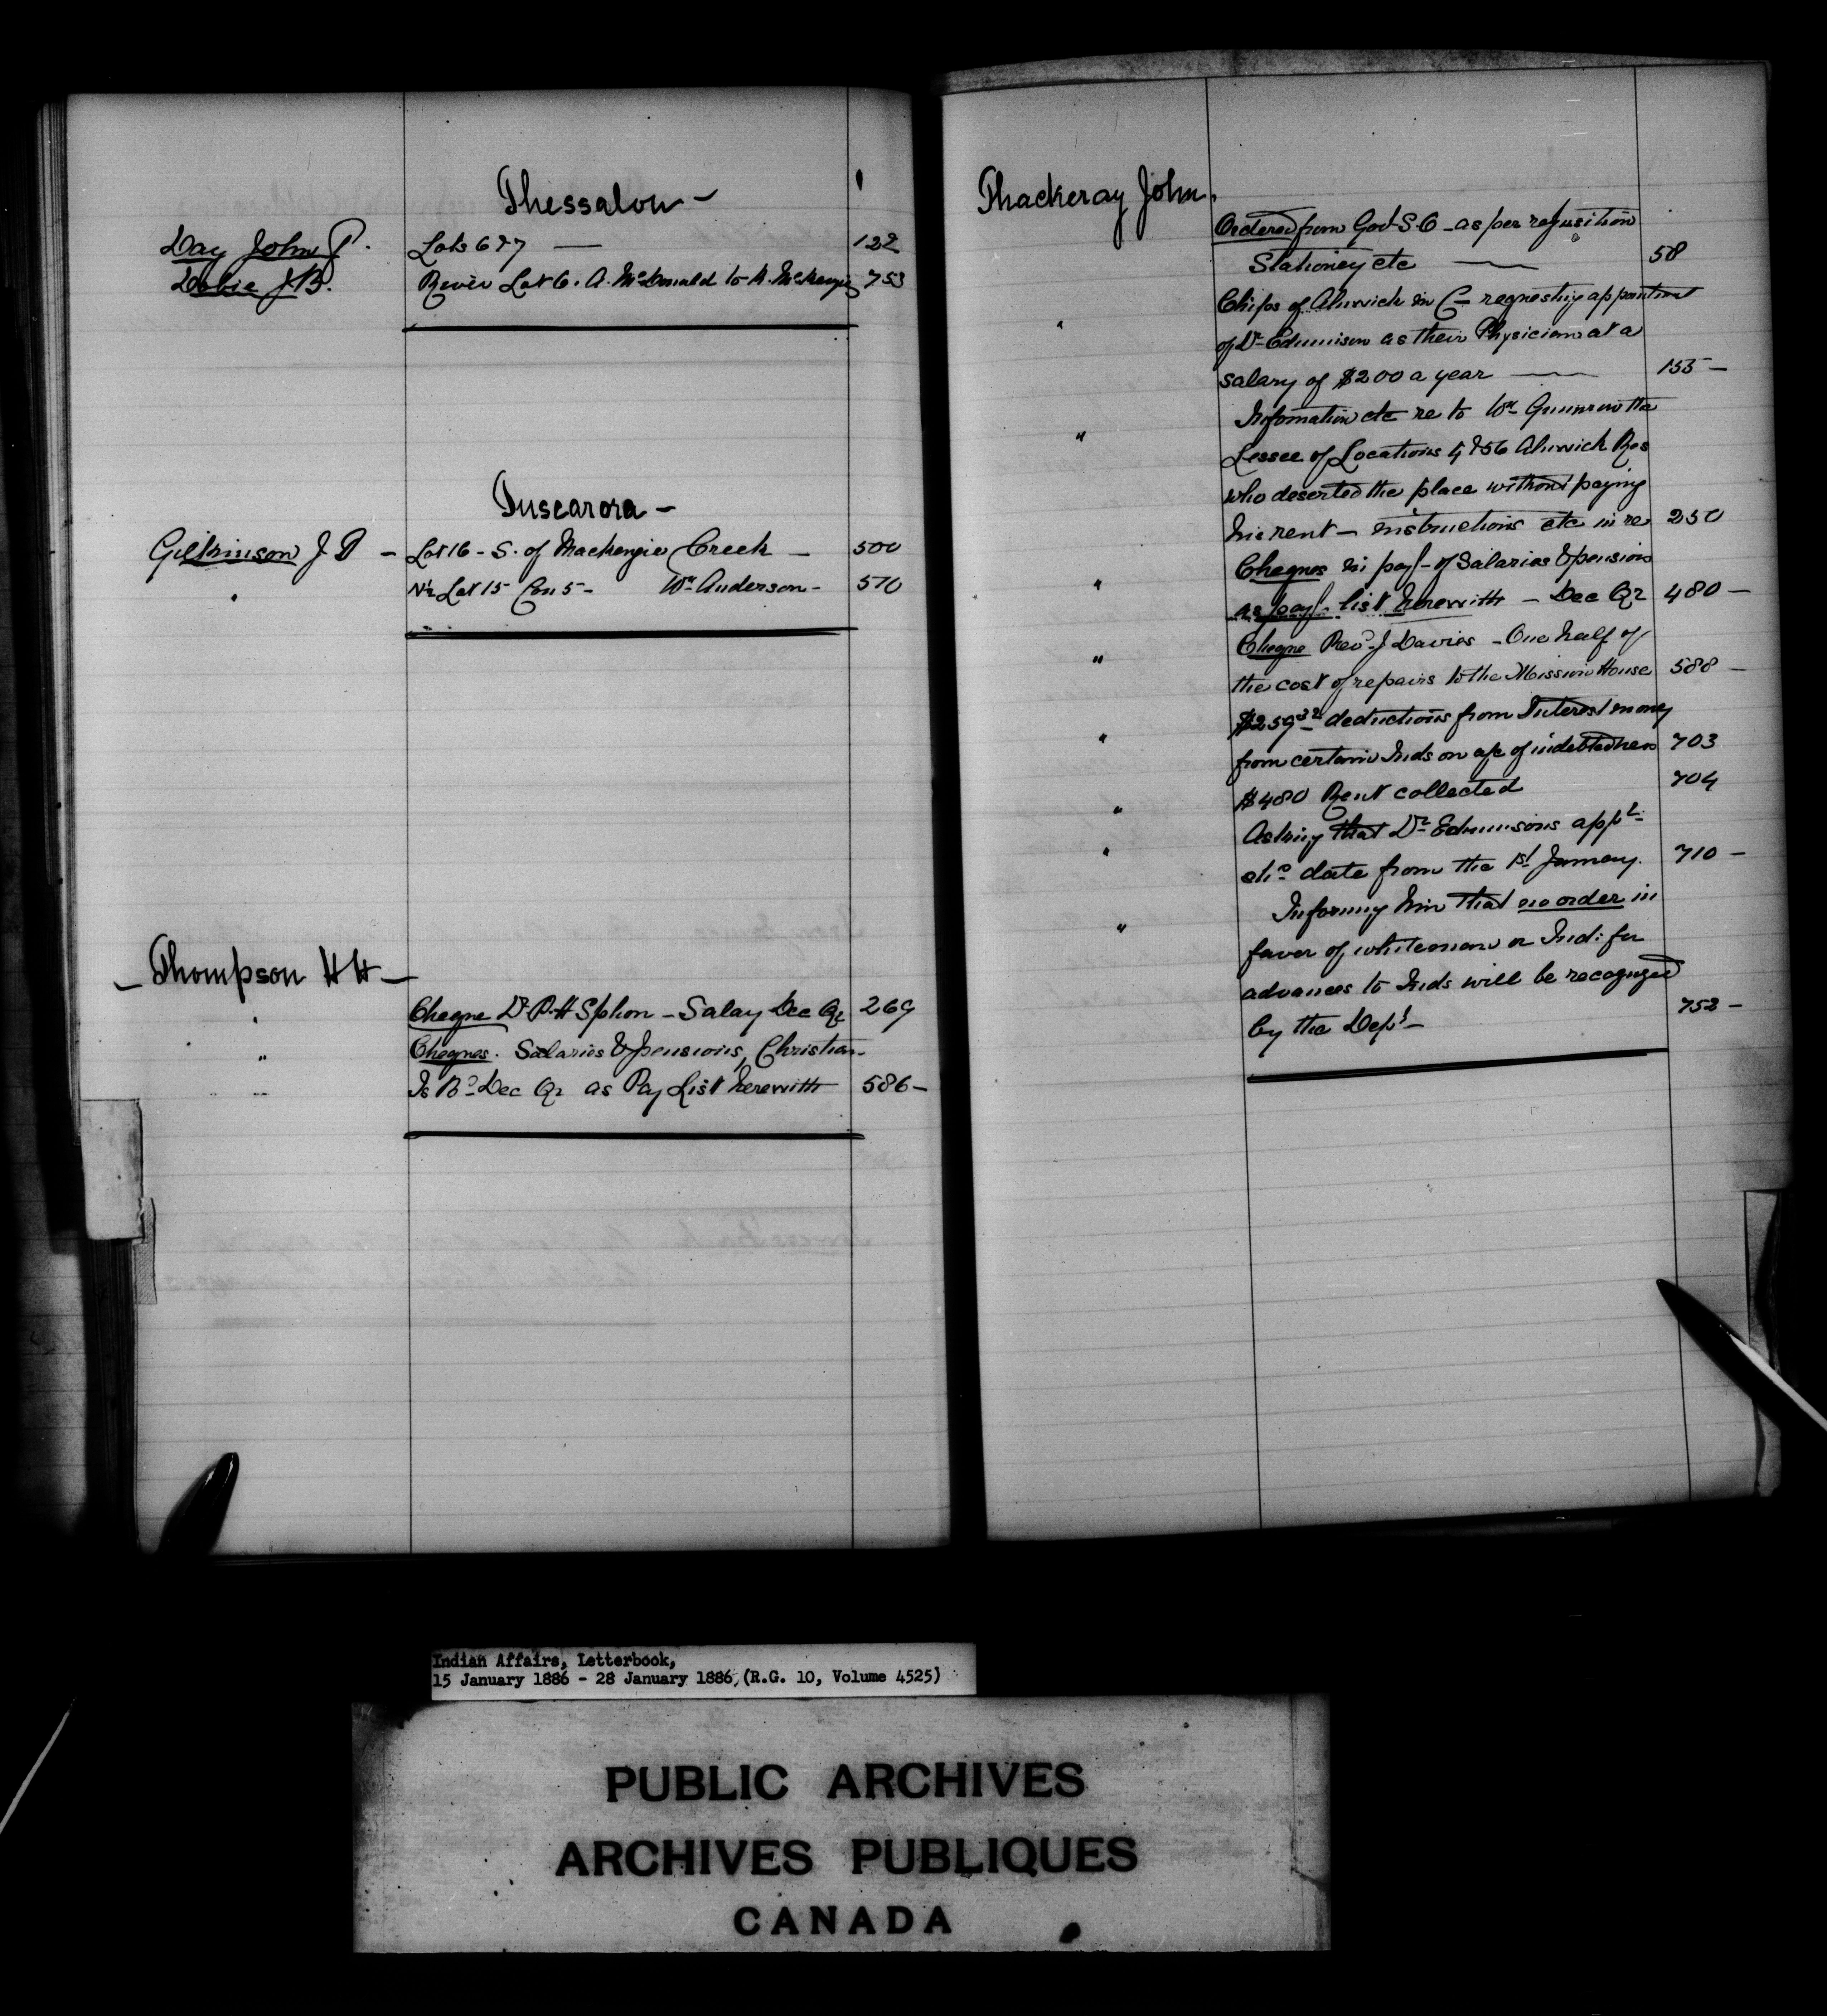 Thessalon -
Day John P. Lots 6 & 7 — 122
Dobie J B. River Lot 6. A. McDonald to A. McKenzie 753
Tuscarora -
Gilkinson J T - Lot 16 - S. of Mackenzie Creek - 500
" N½ Lot 15 Con 5 - Wm Anderson - 570
- Thompson H H -
" Cheque Dr P. H Spohn - Salary Dec Qr 269
" Cheques. Salaries & pensions, Christian
Is Bd Dec Qr as Pay List herewith 586 -
Thackeray John.
Ordered from Govt S. O - as per requisition
Stationery etc — 58
" Chiefs of Alnwick in C- requesting appointment
of Dr Edmison as their Physician at a
salary of $200 a year — 155 -
" Information etc re to Wm the
Lessee of Locations & 56 Alnwick Res
who deserted the place without paying
his rent - instructions etc in re 250
" Cheques in payt of Salaries & pensions
as pay list herewith - Dec Qr 480 -
" Cheque Revd J Davies - One half of
the cost of repairs to the Mission House 588 -
" $259.32 deductions from Interest money
from certain Inds on a/c of indebtedness 703
" $480 Rent collected 704
" Asking that Dr Edmisons appt
shd date from the 1st January. 710 -
" Informing him that no order in
favor of whiteman or Ind: for
advances to Inds will be recognized
by the Dept - 752 -
Indian Affairs, Letterbook,
15 January 1886 - 28 January 1886, (R.G. 10, Volume 4525)
PUBLIC ARCHIVES
ARCHIVES PUBLIQUES
CANADA